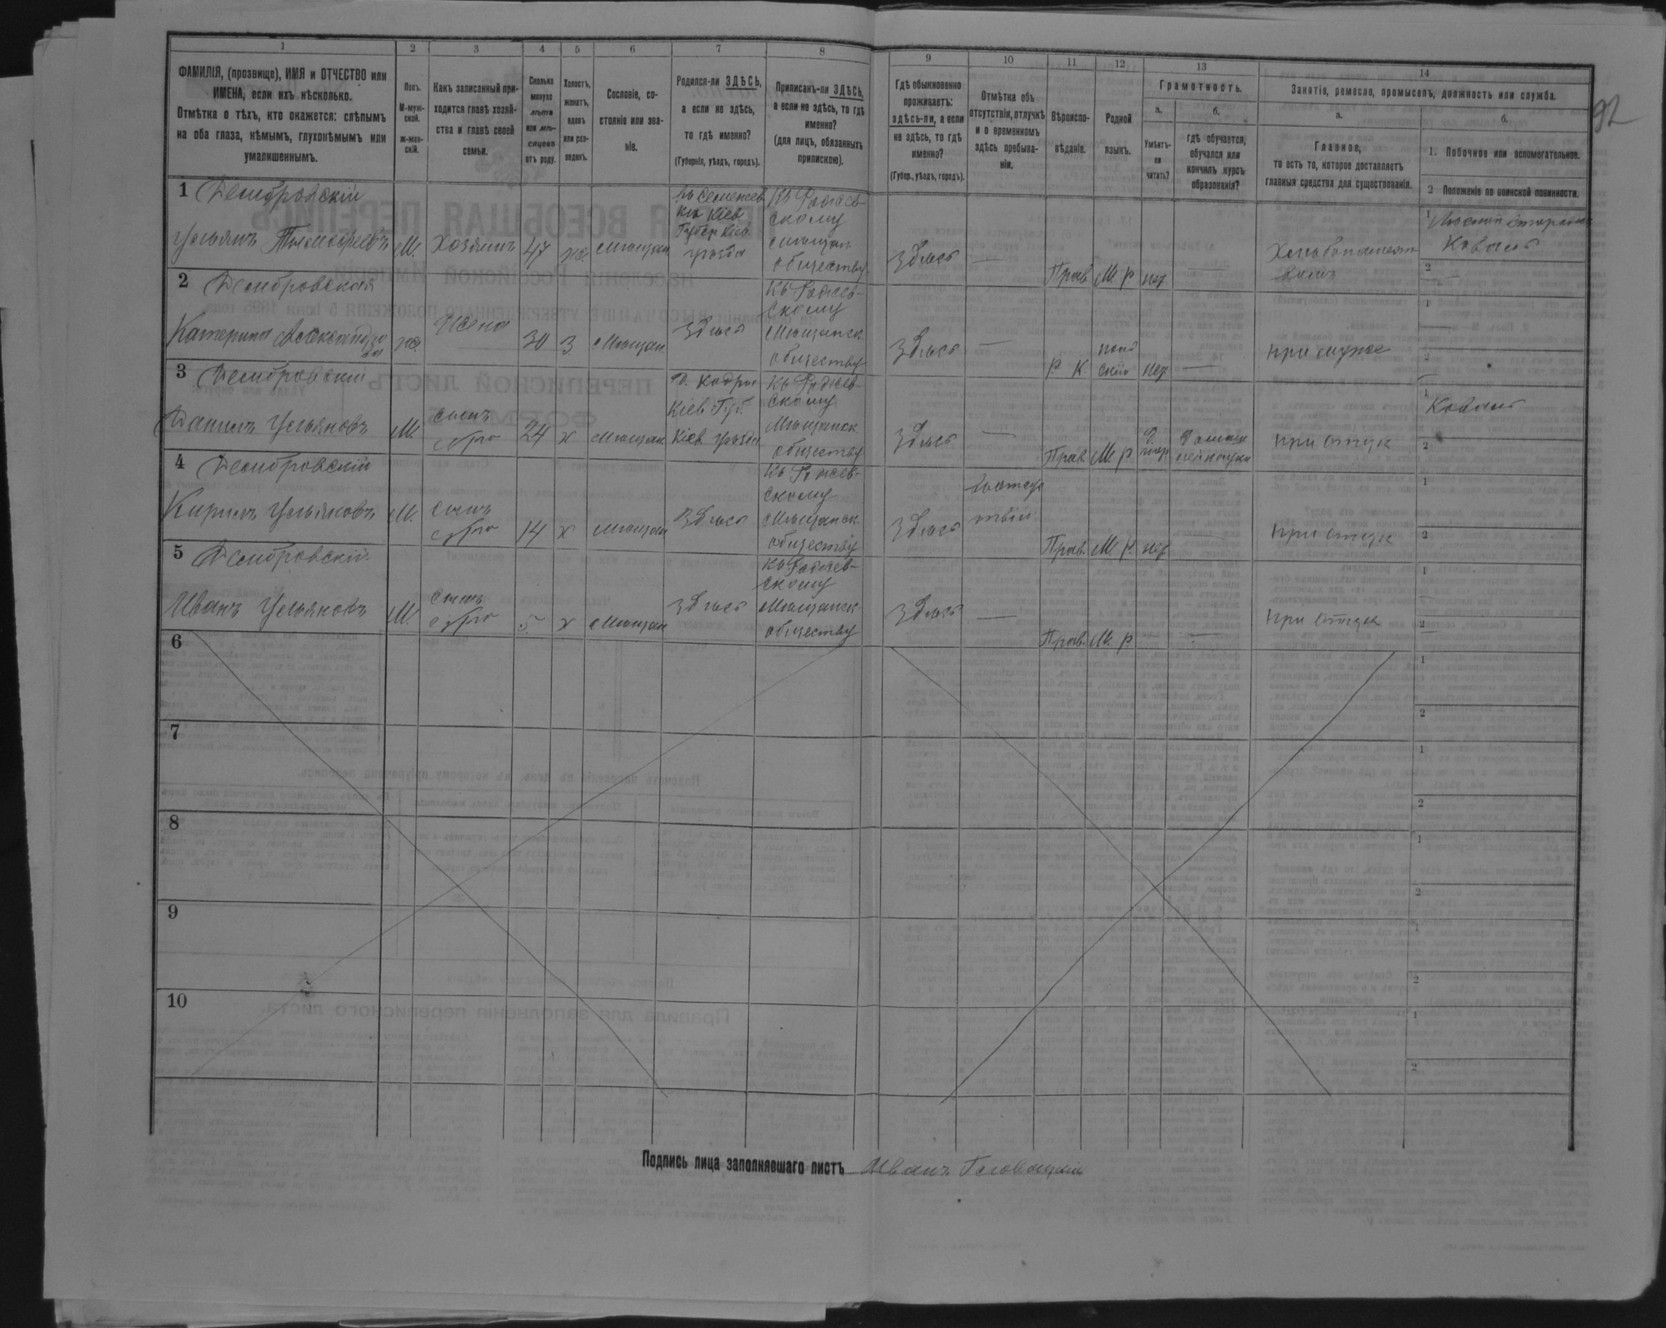 1
2
3
4
5
6
7
8
9
10
11
12
13
14
ФАМИЛІЯ, (прозвище), ИМЯ и ОТЧЕСТВО или
ИМЕНА, если ихъ нѣсколько.
Отмѣтка о тѣхъ, кто окажется: слѣпымъ
на оба глаза, нѣмымъ, глухонѣмымъ или
умалишеннымъ.
Полъ.
М-муж-
ской.
ж-жен-
скій.
Какъ записанный при-
ходится главѣ хозяй-
ства и главѣ своей
семьи.
Сколько
минуло
лѣтъ
или мѣ-
сяцевъ
отъ роду.
Холостъ,
женатъ,
вдовъ
или раз-
веденъ.
Сословіе, со-
стояніе или зва-
ніе.
Родился-ли ЗДѢСЬ,
а если не здѣсь,
то гдѣ именно?
(Губернія, уѣздъ, городъ).
Приписанъ-ли ЗДѢСЬ,
а если не здѣсь, то гдѣ
именно?
(для лицъ, обязанныхъ
припискою).
Гдѣ обыкновенно
проживаетъ:
здѣсь-ли, а если
не здѣсь, то гдѣ
именно?
(Губер., уѣздъ, городъ).
Отмѣтка объ
отсутствіи, отлучкѣ
и о временномъ
здѣсь пребыва-
ніи.
Вѣроиспо-
вѣданіе.
Родной
языкъ.
Грамотность.
а.
Умѣетъ-
ли
читать?
б.
гдѣ обучается,
обучался или
кончилъ курсъ
образованія?
Занятіе, ремесло, промыселъ, должность или служба.
а.
Главное,
то есть то, которое доставляетъ
главныя средства для существованія.
б.
1. Побочное или вспомогательное.
2 Положеніе по воинской повинности.
92
1 Домбровскій
Ульянъ М. Хозяинъ 47 ж Мѣщан
Здѣсь — Прав М. р нет —
Коваль
2 Домбровская
Катерина Александро ж. Жена 30 з Мѣщан Здѣсь
Къ Радзев-
скому
Мѣщанск
обществу
Здѣсь — Р К поль
ский нет — при мужѣ
3 Домбровскій
Данилъ Ульяновъ М. сынъ
его 24 х Мѣщан
Кіев Губ.
Кіев уѣзда
Къ Радзев-
скому
Мѣщанск
обществу
Здѣсь — Прав М. р
при отцѣ
Коваль
4 Домбровскій
Кирилъ Ульяновъ М. сынъ
его 14 х Мѣщан Здѣсь
Къ Радзев-
скому
Мѣщанск
обществу
Здѣсь
Прав. М. р. нет
при отцѣ
5 Домбровскій
Иванъ Ульяновъ М. сынъ
его 5 х Мѣщан Здѣсь
Къ Радзев-
скому
Мѣщанск
обществу
Здѣсь — Прав. М. р — —
при отцѣ
6
7
8
9
10
Подпись лица заполнявшаго листъ Иванъ Головацкій